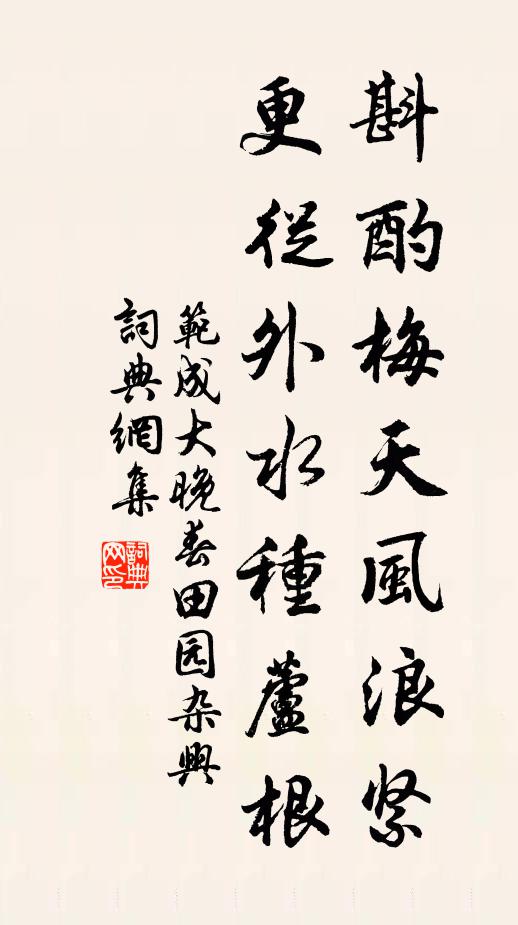 斟酌梅天風浪緊
更從外水種蘆根
範成大晚春田园杂興
詞典網集
詞典網印